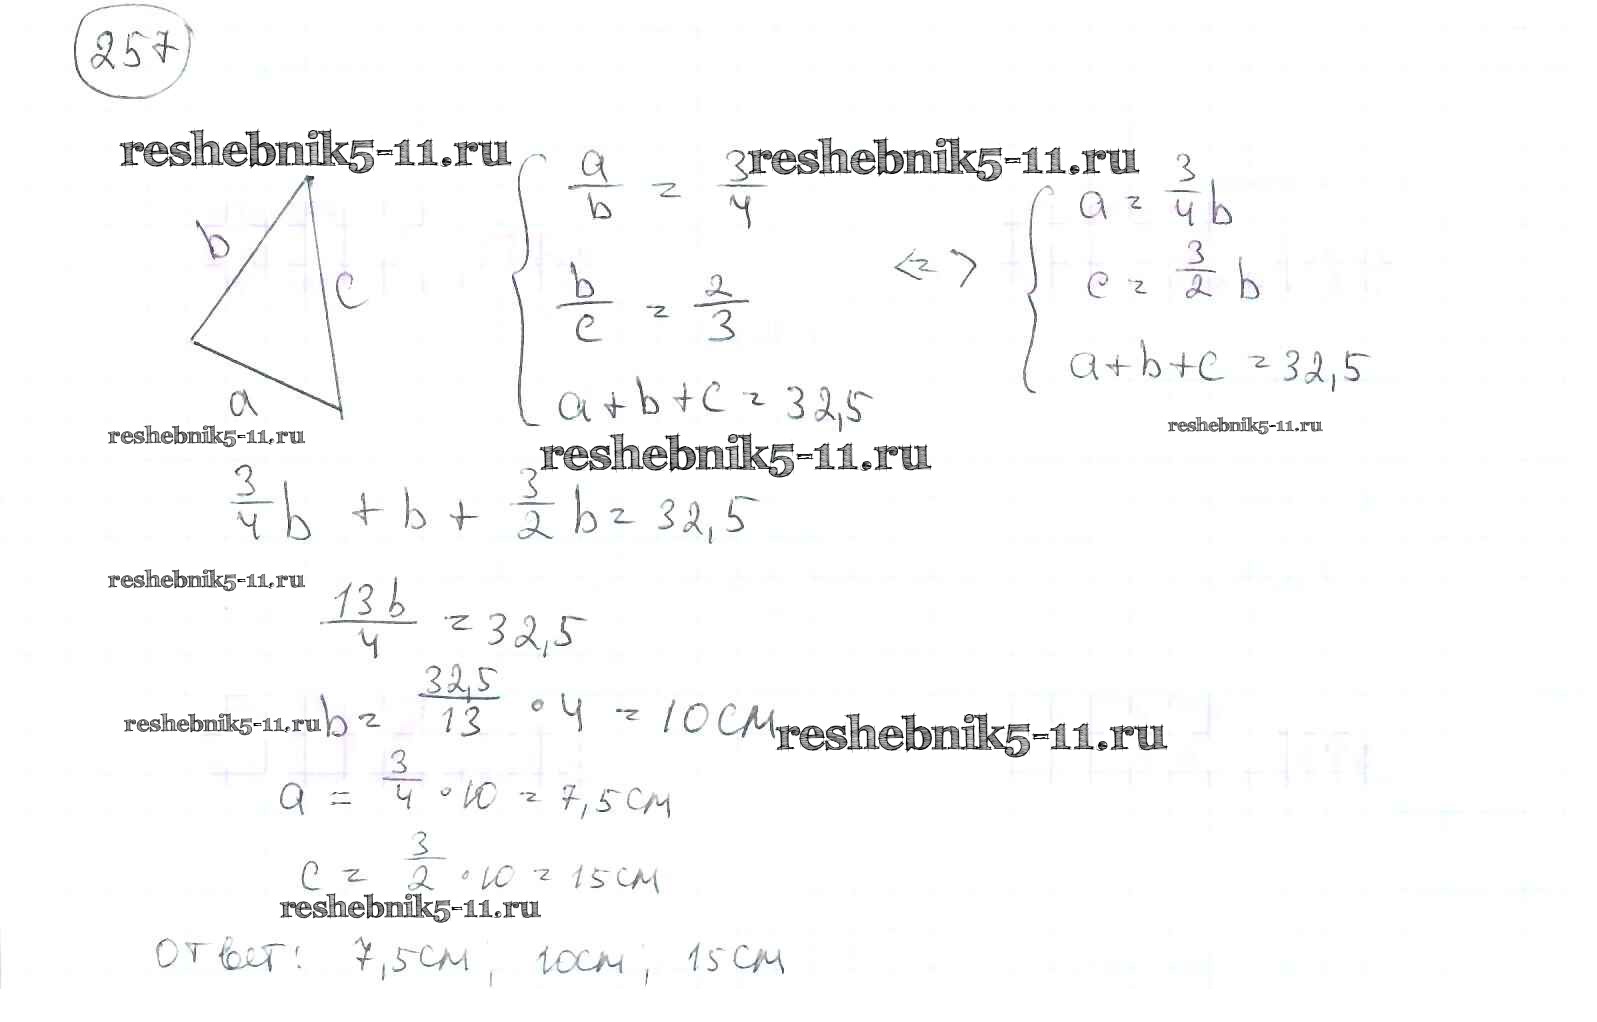 257
reshebnik5-11.ru reshebnik5-11.ru
a/b = 3/4
b/c = 2/3
a+b+c = 32,5
<=>
a = 3/4 b
c = 3/2 b
a+b+c = 32,5
b
c
a
reshebnik5-11.ru reshebnik5-11.ru
reshebnik5-11.ru
3/4 b + b + 3/2 b = 32,5
reshebnik5-11.ru
13b/4 = 32,5
reshebnik5-11.ru b = 32,5/13 · 4 = 10 см reshebnik5-11.ru
a = 3/4 · 10 = 7,5 см
c = 3/2 · 10 = 15 см
reshebnik5-11.ru
Ответ: 7,5 см, 10 см, 15 см